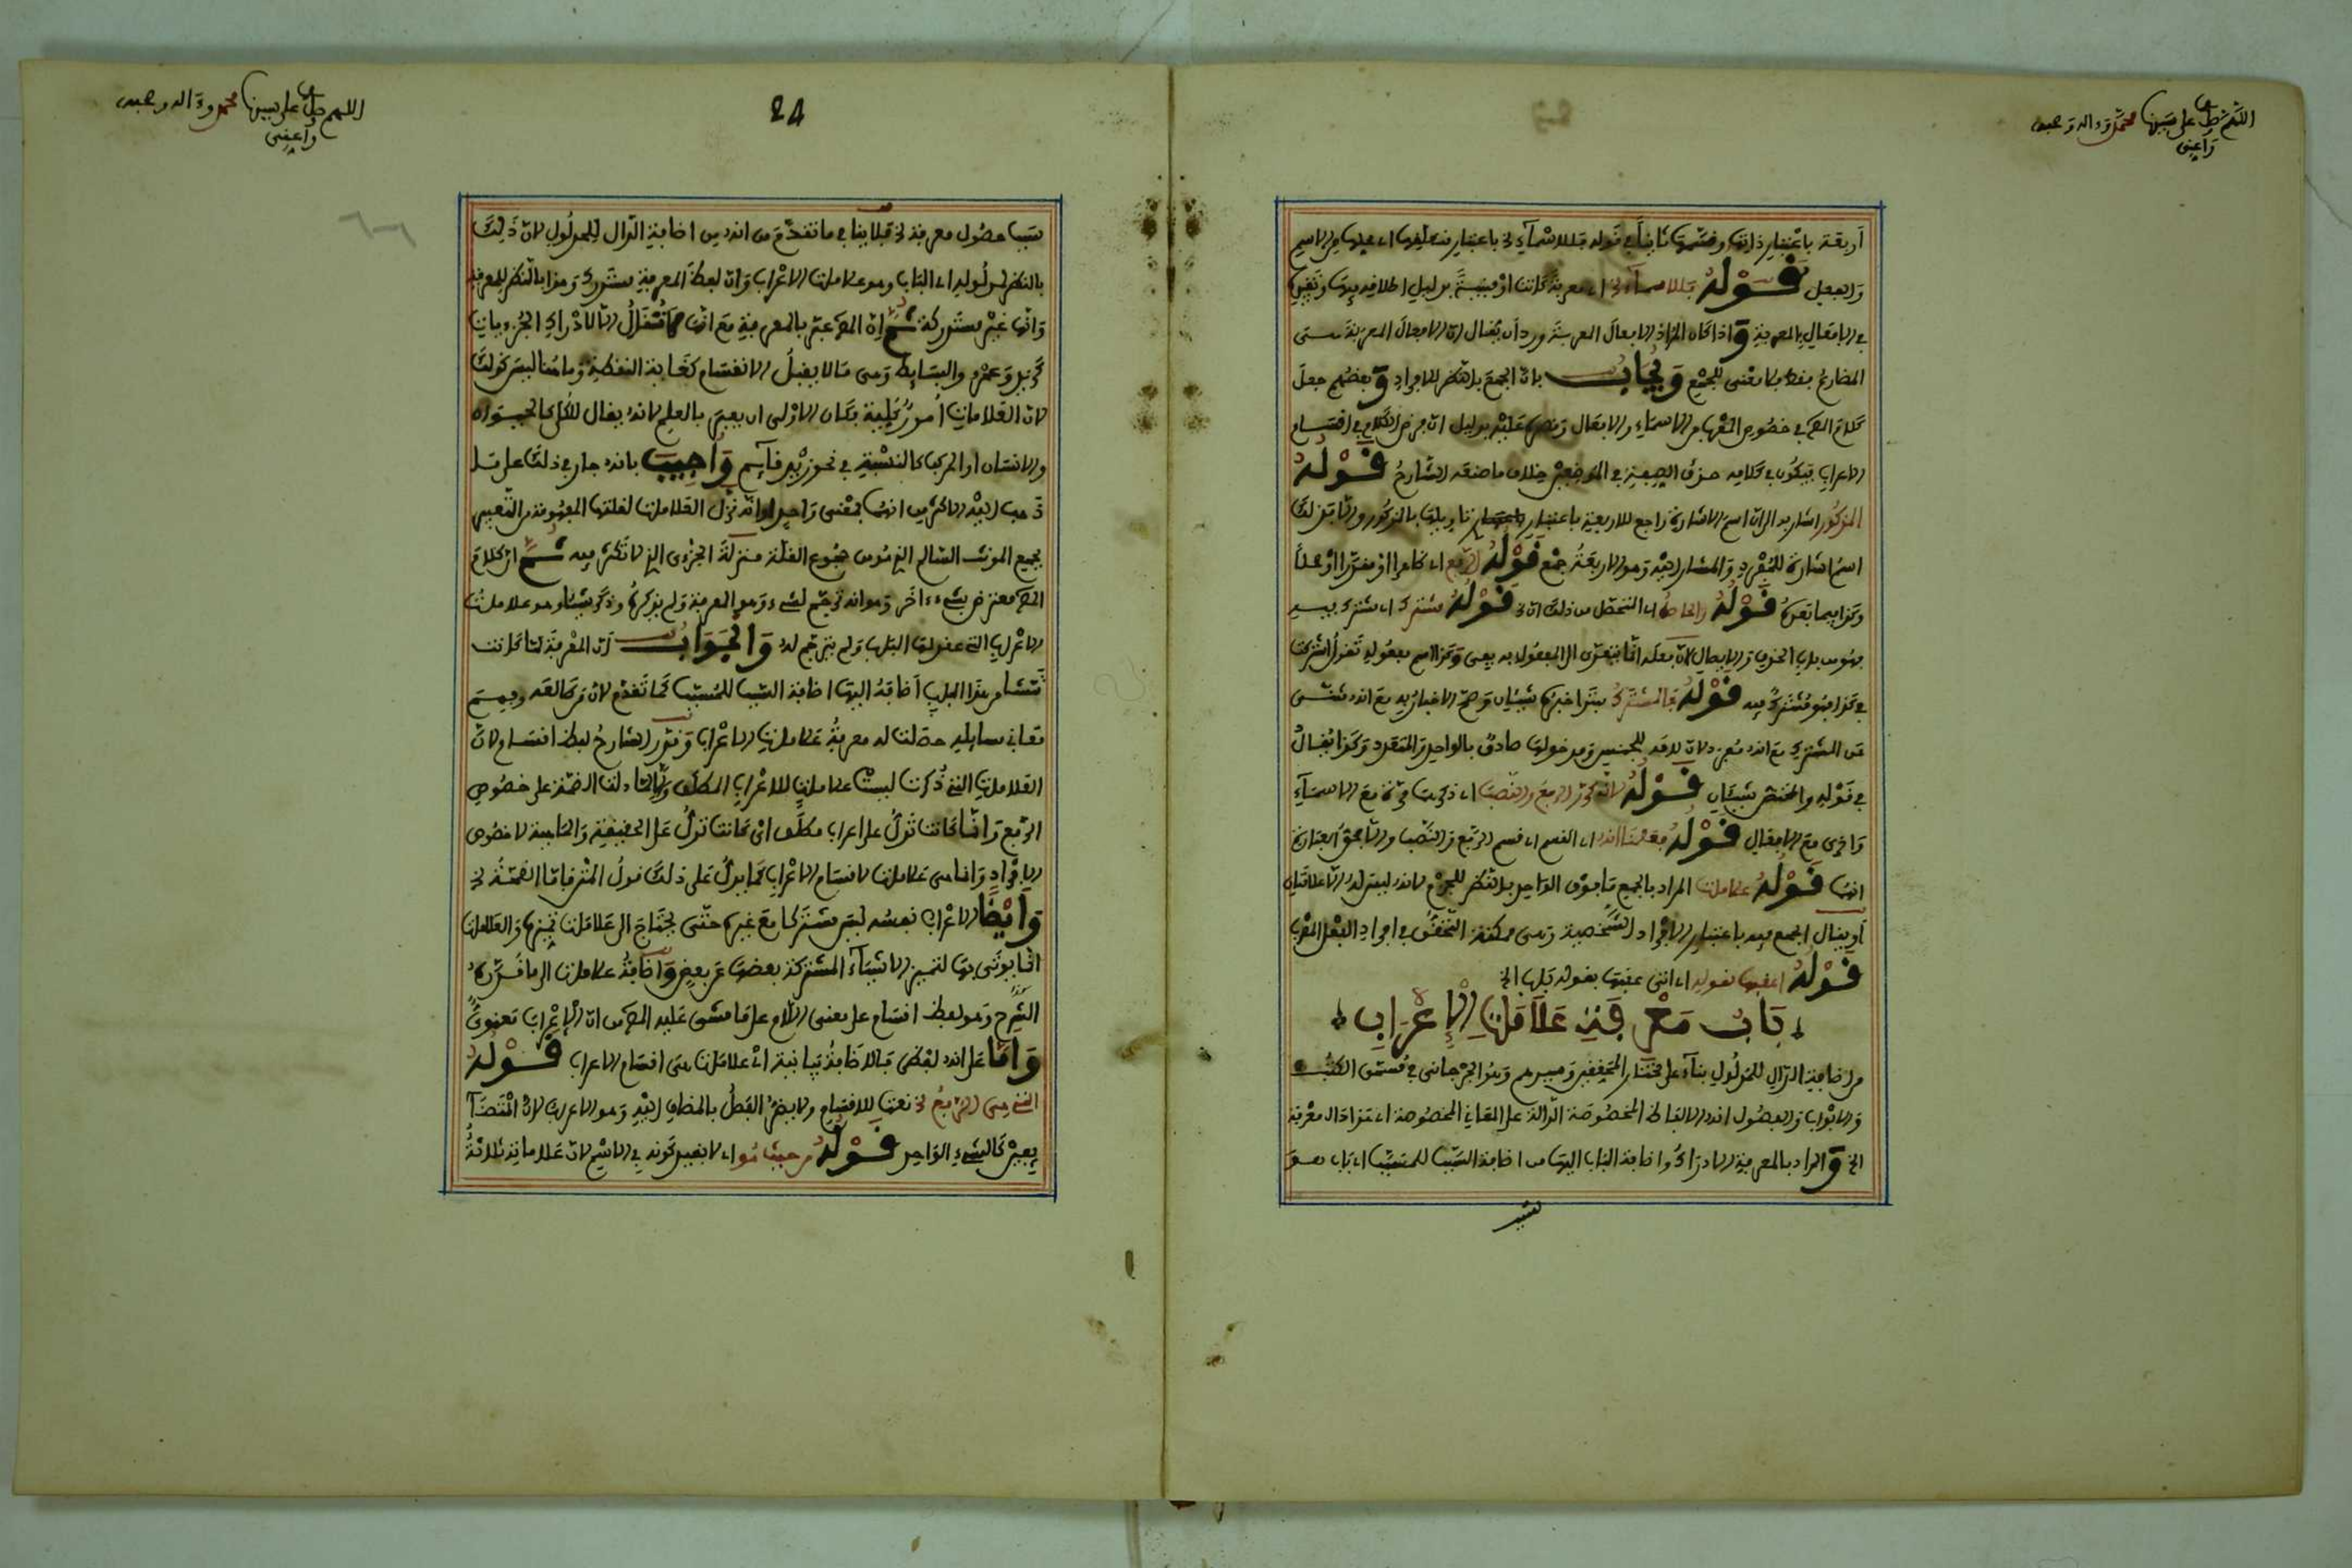 اللهم صل على سيدنا محمد وءاله وصحبه
وأعني
أربعة باعتبار ذاتها وقسمها ثانيا في قوله فللأسماء الخ باعتبار متعلقها أي محلها من الاسم
والفعل قوله فللأسماء الخ أي معربة كانت أو مبنية بدليل إطلاقه
في الأفعال المعربة وإذا كان المراد الأفعال المعربة ورد أن يقال إن الأفعال المعربة
المضارع فقط فلا معنى للجمع ويجاب بأن الجمع بالنظر للأفراد وبعضهم جعل
كلام المص في خصوص المعرب من الأسماء والأفعال بدليل أن فرض الكلام في أقسام
الإعراب فيكون في كلامه حذف الصفة في الموضعين خلاف ما صنعه الشارح قوله
المذكور أشار به إلى أن اسم الإشارة راجع للأربعة باعتبار تأويلها بالمذكور وإلا فذلك
اسم إشارة للمفرد والمشار إليه وهو الأربعة جمع قوله الرفع أي ظاهرا أو مقدرا أو محلا
وكذا فيما بعده قوله والحاصل أي المتحصل من ذلك أن الخ قوله مشترك أي مشترك فيه
فهو من باب الحذف والإيصال لأن فعله إنما يتعدى إلى المفعول به بفي وكذا اسم مفعوله تقول اشتركت
في كذا فهو مشترك فيه قوله فالمشترك مبتدأ خبره شيئان وصح الإخبار به مع أنه مثنى
عن المشترك مع أنه مفرد لأن أل فيه للجنس ومدخولها صادق بالواحد والمتعدد وكذا يقال
في قوله والمختص شيئان قوله لأنه كرر الرفع والنصب أي ذكرت مرة مع الأسماء
وأخرى مع الأفعال قوله فعلمنا أنه أي القسم أي قسم الرفع والنصب وإلا فحق العبارة
أنهما قوله علامات المراد بالجمع ما فوق الواحد بالنظر للجزم لأنه ليس له إلا علامتان
أو يقال الجمع فيه باعتبار الأفراد الشخصية وهي ممكنة التحقق في أفراد الفعل المعرب
قوله أعقبها بقوله أي أتى عقبها بقوله باب الخ
باب معرفة علامات الإعراب
من إضافة الدال للمدلول بناء على مختار المحققين وغيرهم وهو الجرجاني في مسمى الكتب
والأبواب والفصول أنه الألفاظ المخصوصة الدالة على المعاني المخصوصة أي هذا دال معرفة
الخ والمراد بالمعرفة الإدراك وإضافة الباب إليها من إضافة السبب للمسبب أي باب هو
سبب
24
اللهم صل على سيدنا محمد وءاله وصحبه
وأعني
سبب حصول معرفة الخ فلا ينافي ما تقدم من أنه من إضافة الدال للمدلول لأن ذلك
بالنظر لمدلوله أي الباب وهو علامات الإعراب وأن لفظ المعرفة مستدرك وهذا بالنظر للمعرفة
وأنها غير مستدركة ثم إن المص عبر بالمعرفة مع أنها لا تقال إلا لإدراك الجزءيات
كزيد وعمرو والبسايط وهي ما لا يقبل الانقسام كغاية النقطة وما هنا ليس كذلك
لأن العلامات أمور كلية فكان الأولى أن يعبر بالعلم لأنه يقال للكلي كالحيوان
والإنسان أو المركب كالنسبة في نحو زيد قايم وأجيب بأنه جار في ذلك على ما
ذهب إليه الأكثر من أنهما بمعنى واحد أو أنه نزل العلامات لقلتها المفهومة من التعبير
بجمع المونث السالم الذي هو من جموع القلة منزلة الجزءي الذي لا تكثر فيه ثم إن كلام
المص معترض بشيء ءاخر وهو أنه ترجم لشيء وهو المعرفة ولم يذكره وذكر شيئا وهو علامات
الإعراب التي عقد لها الباب ولم يترجم له والجواب أن المعرفة لما كانت
تنشأ من هذا الباب أضافه إليها إضافة السبب للمسبب كما تقدم لأن من طالعه وفهم
معاني مسايله حصلت له معرفة علامات الإعراب وقدر الشارح لفظ أقسام لأن
العلامات التي ذكرت ليست علامات للإعراب المطلق وإلا لما دلت الضمة على خصوص
الرفع وإنما كانت تدل على إعراب مطلق أي كانت تدل على الحقيقة والماهية لا خصوص
الأفراد وإنما هي علامات لأقسام الإعراب كما يدل على ذلك قول المتن فأما الضمة الخ
وأيضا الإعراب نفسه ليس مشتركا مع غيره حتى يحتاج إلى علامات تميزه والعلامات
إنما يوتى بها لتمييز الأشياء المشتركة بعضها عن بعض وإضافة علامات إلى ما قدره
الشرح وهو لفظ أقسام على معنى اللام على ما مشى عليه المص من أن الإعراب معنوي
وأما على أنه لفظي فالإضافة بيانية أي علامات هي أقسام الإعراب قوله
التي هي الرفع الخ نعت للأقسام ولا يضر الفصل بالمضاف إليه وهو الإعراب لأن المتضا
يفين كالشيء الواحد قوله من حيث هو أي لا بقيد كونه في الاسم لأن علاماته ثلاثة